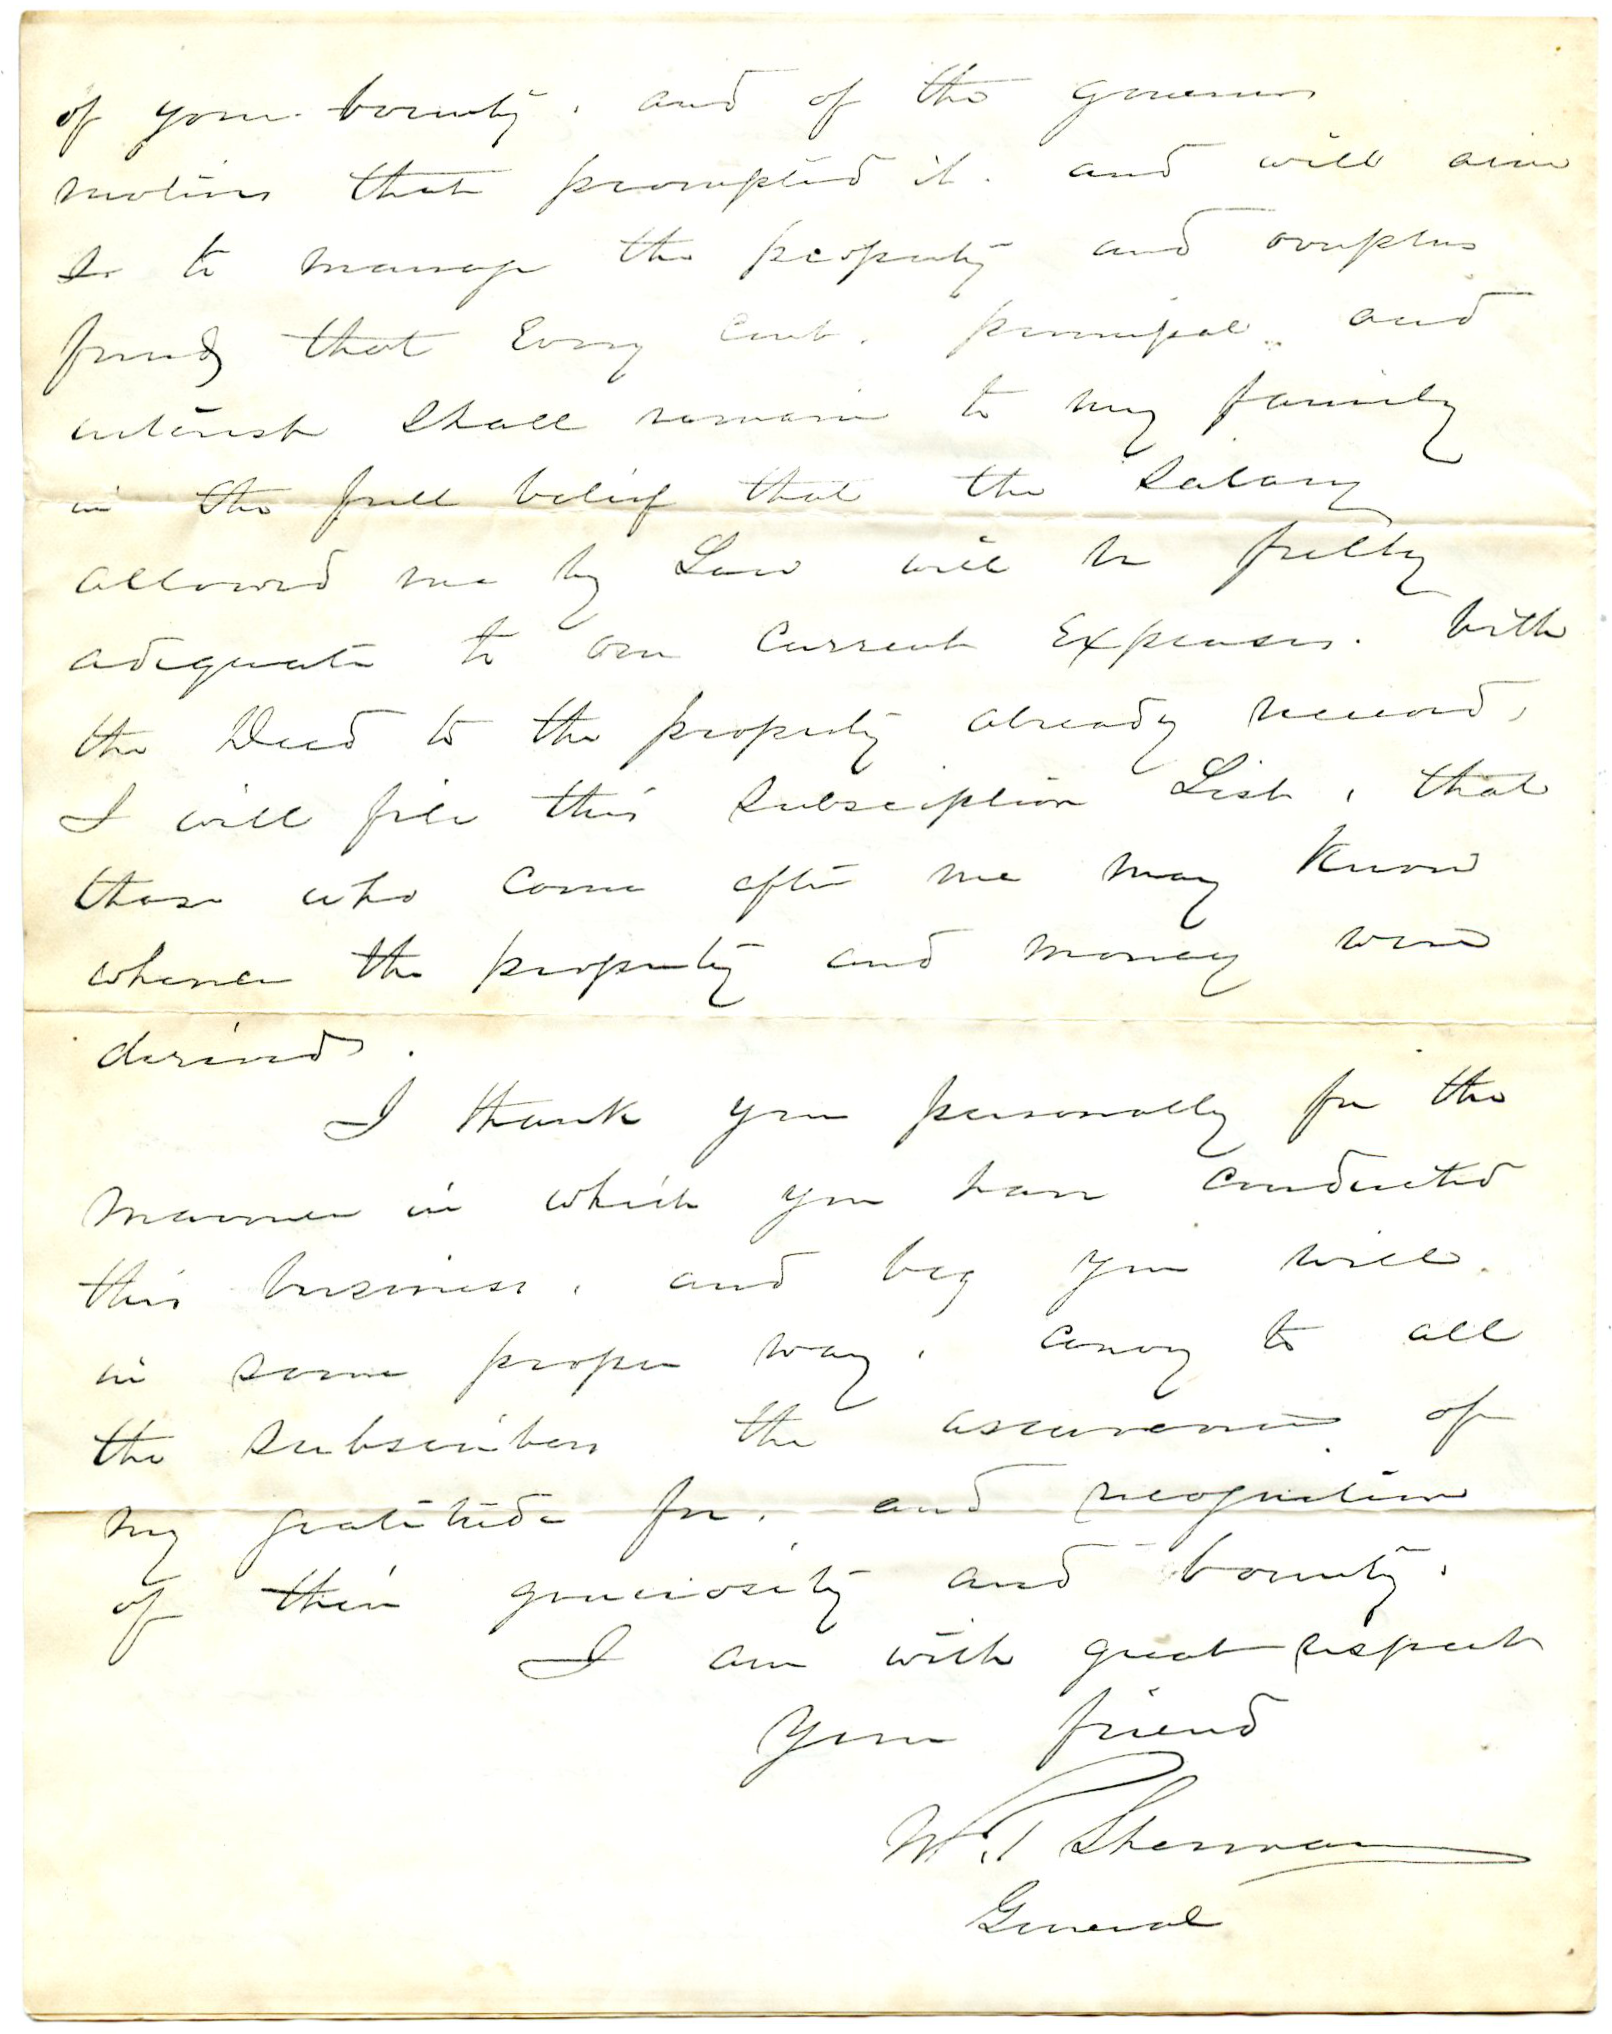 of your bounty, and of the generous
motives that prompted it. and will aim
so to manage the property and overplus
funds that Every Cent, principal and
interest shall remain to my family
in the full belief that the Salary
allowed me by Law will be fully
adequate to our Current Expenses. With
the Deed to the property already received,
I will file this Subscription List, that
those who come after me may Know
whence the property and money were
derived.
I thank you personally for the
manner in which you have conducted
this business, and beg you will.
in some proper way, convey to all
the subscribers the assurance of
my gratitude for, and recognition
of their generosity and bounty.
I am with great respect
Your friend
W. T. Sherman
General